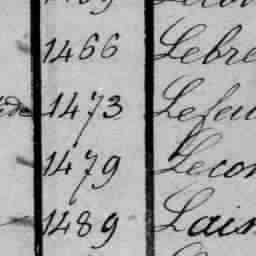 1466 Lebre
1473 Lefau
1479 Lecon
1489 Lain